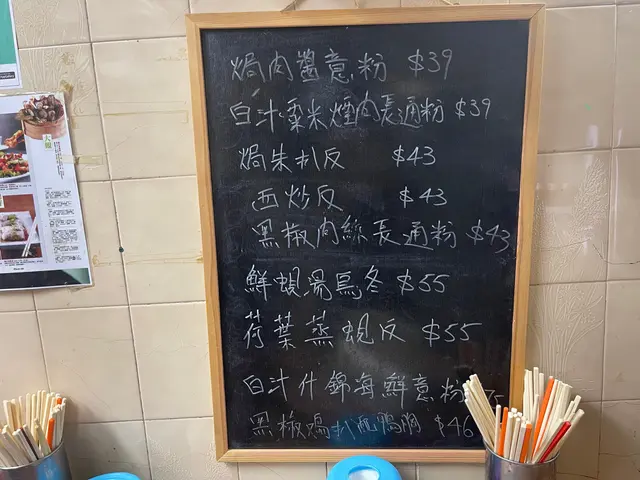 焗肉醬意粉 $39
白汁粟米煙肉長通粉 $39
焗朱扒反 $43
西炒反 $43
黑椒肉絲長通粉 $43
鮮蜆湯烏冬 $55
荷葉蒸蜆反 $55
白汁什錦海鮮意粉
黑椒鸡扒配鴨胸 $46